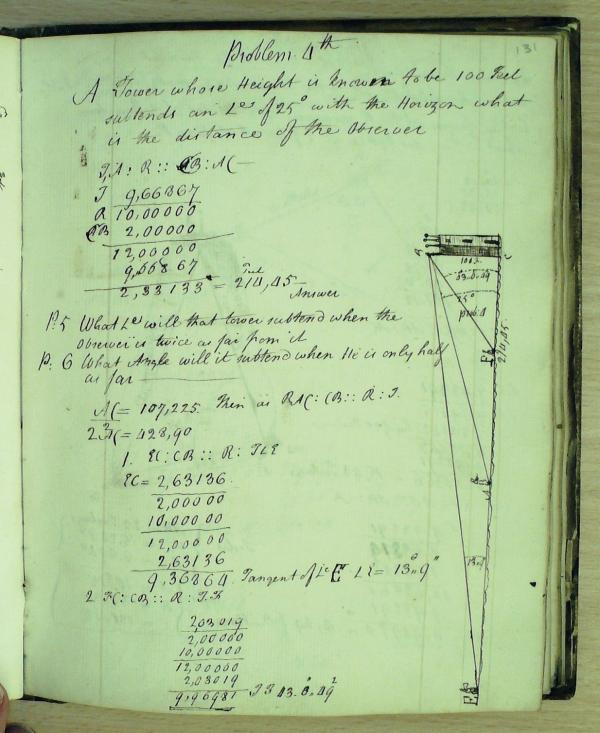 131
Problem 4th
A Tower whose Height is known to be 100 Feet
subtends an Le of 25° with the Horizon what
is the distance of the Observer
T,A : R :: CB : AC
T 9,66867
R 10,00000
CB 2,00000
12,00000
9,66867
2,33133 = 214,45 Feet
Answer
P. 5 What Le will that tower subtend when the
observer is twice as far from it
P: 6 What Angle will it subtend when He is only half
as far
AC/2 = 107,225 Then as
2AC = 428,90
1. EC : CB :: R : T,E
EC = 2,63136
2,00000
10,00000
12,00000
2,63136
9,36864 Tangent of Le E LE = 13°,,9"
2 FC : CB :: R : T.F
2,03019
2,00000
10,00000
12,00000
2,03019
9,96981
B
C
100 F.
25°
prob 4
F
214,45
A
E